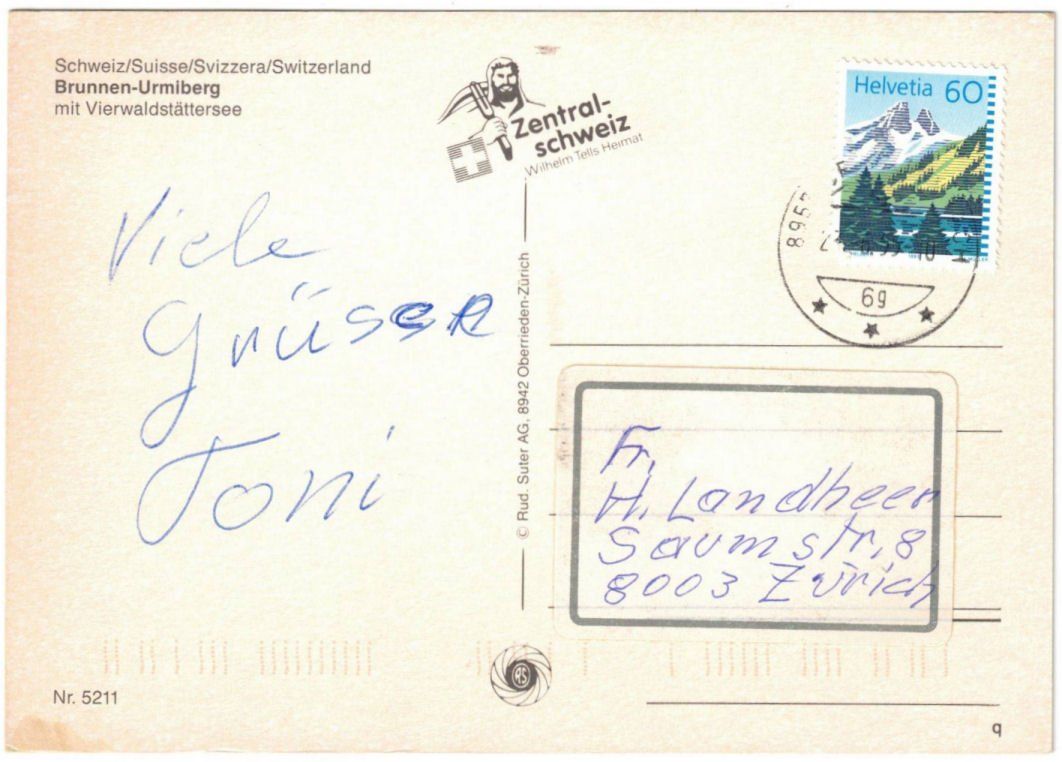 Schweiz/Suisse/Svizzera/Switzerland
Brunnen-Urmiberg
mit Vierwaldstättersee
Zentral-
schweiz
Wilhelm Tells Heimat
Helvetia 60
8955
6g
Viele
Grüsse
Toni
© Rud. Suter AG, 8942 Oberrieden-Zürich
Fr.
H. Landheer
Saumstr. 8
8003 Zürich
RS
Nr. 5211
q